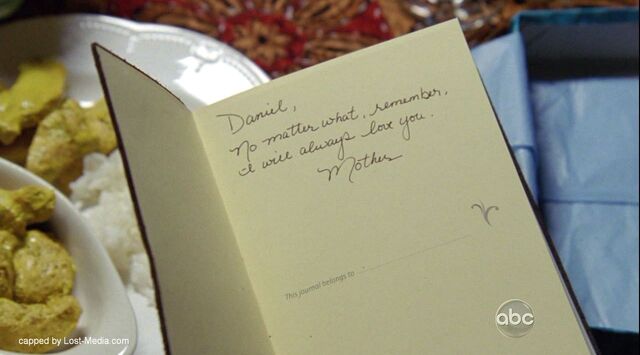 Daniel,
No matter what, remember,
I will always love you.
Mother
This journal belongs to
abc
capped by Lost-Media.com